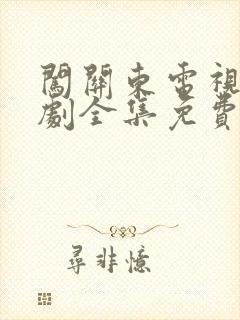 闖關東電視
劇全集免費
尋非憶